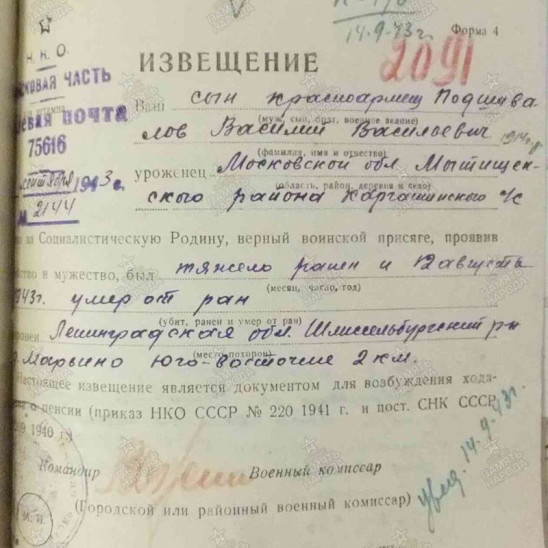 14.9.43г.
Форма 4
Н. К. О.
ЧАСТЬ
ИЗВЕЩЕНИЕ
2091
почта
75616
сентября 1943 г.
№ 2144
Ваш сын красноармеец Подшива
(муж, сын, брат, военное звание)
лов Василий Васильевич 1914г.
(фамилия, имя и отчество)
уроженец Московской обл. Мытищен-
(область, район, деревня и село)
ского района Каргашинского с/с
за Социалистическую Родину, верный воинской присяге, проявив
и мужество, был тяжело ранен и 12 августа
(месяц, число, год)
1943г. умер от ран
(убит, ранен и умер от ран)
Ленинградская обл. Шлиссельбургский р-н
Марьино юго-восточнее 2 км.
(место похорон)
Настоящее извещение является документом для возбуждения хода-
о пенсии (приказ НКО СССР № 220 1941 г. и пост. СНК СССР
1940 г.)
Командир
Военный комиссар
(Городской или районный военный комиссар)
М. П.
увед. 14.9.43г.